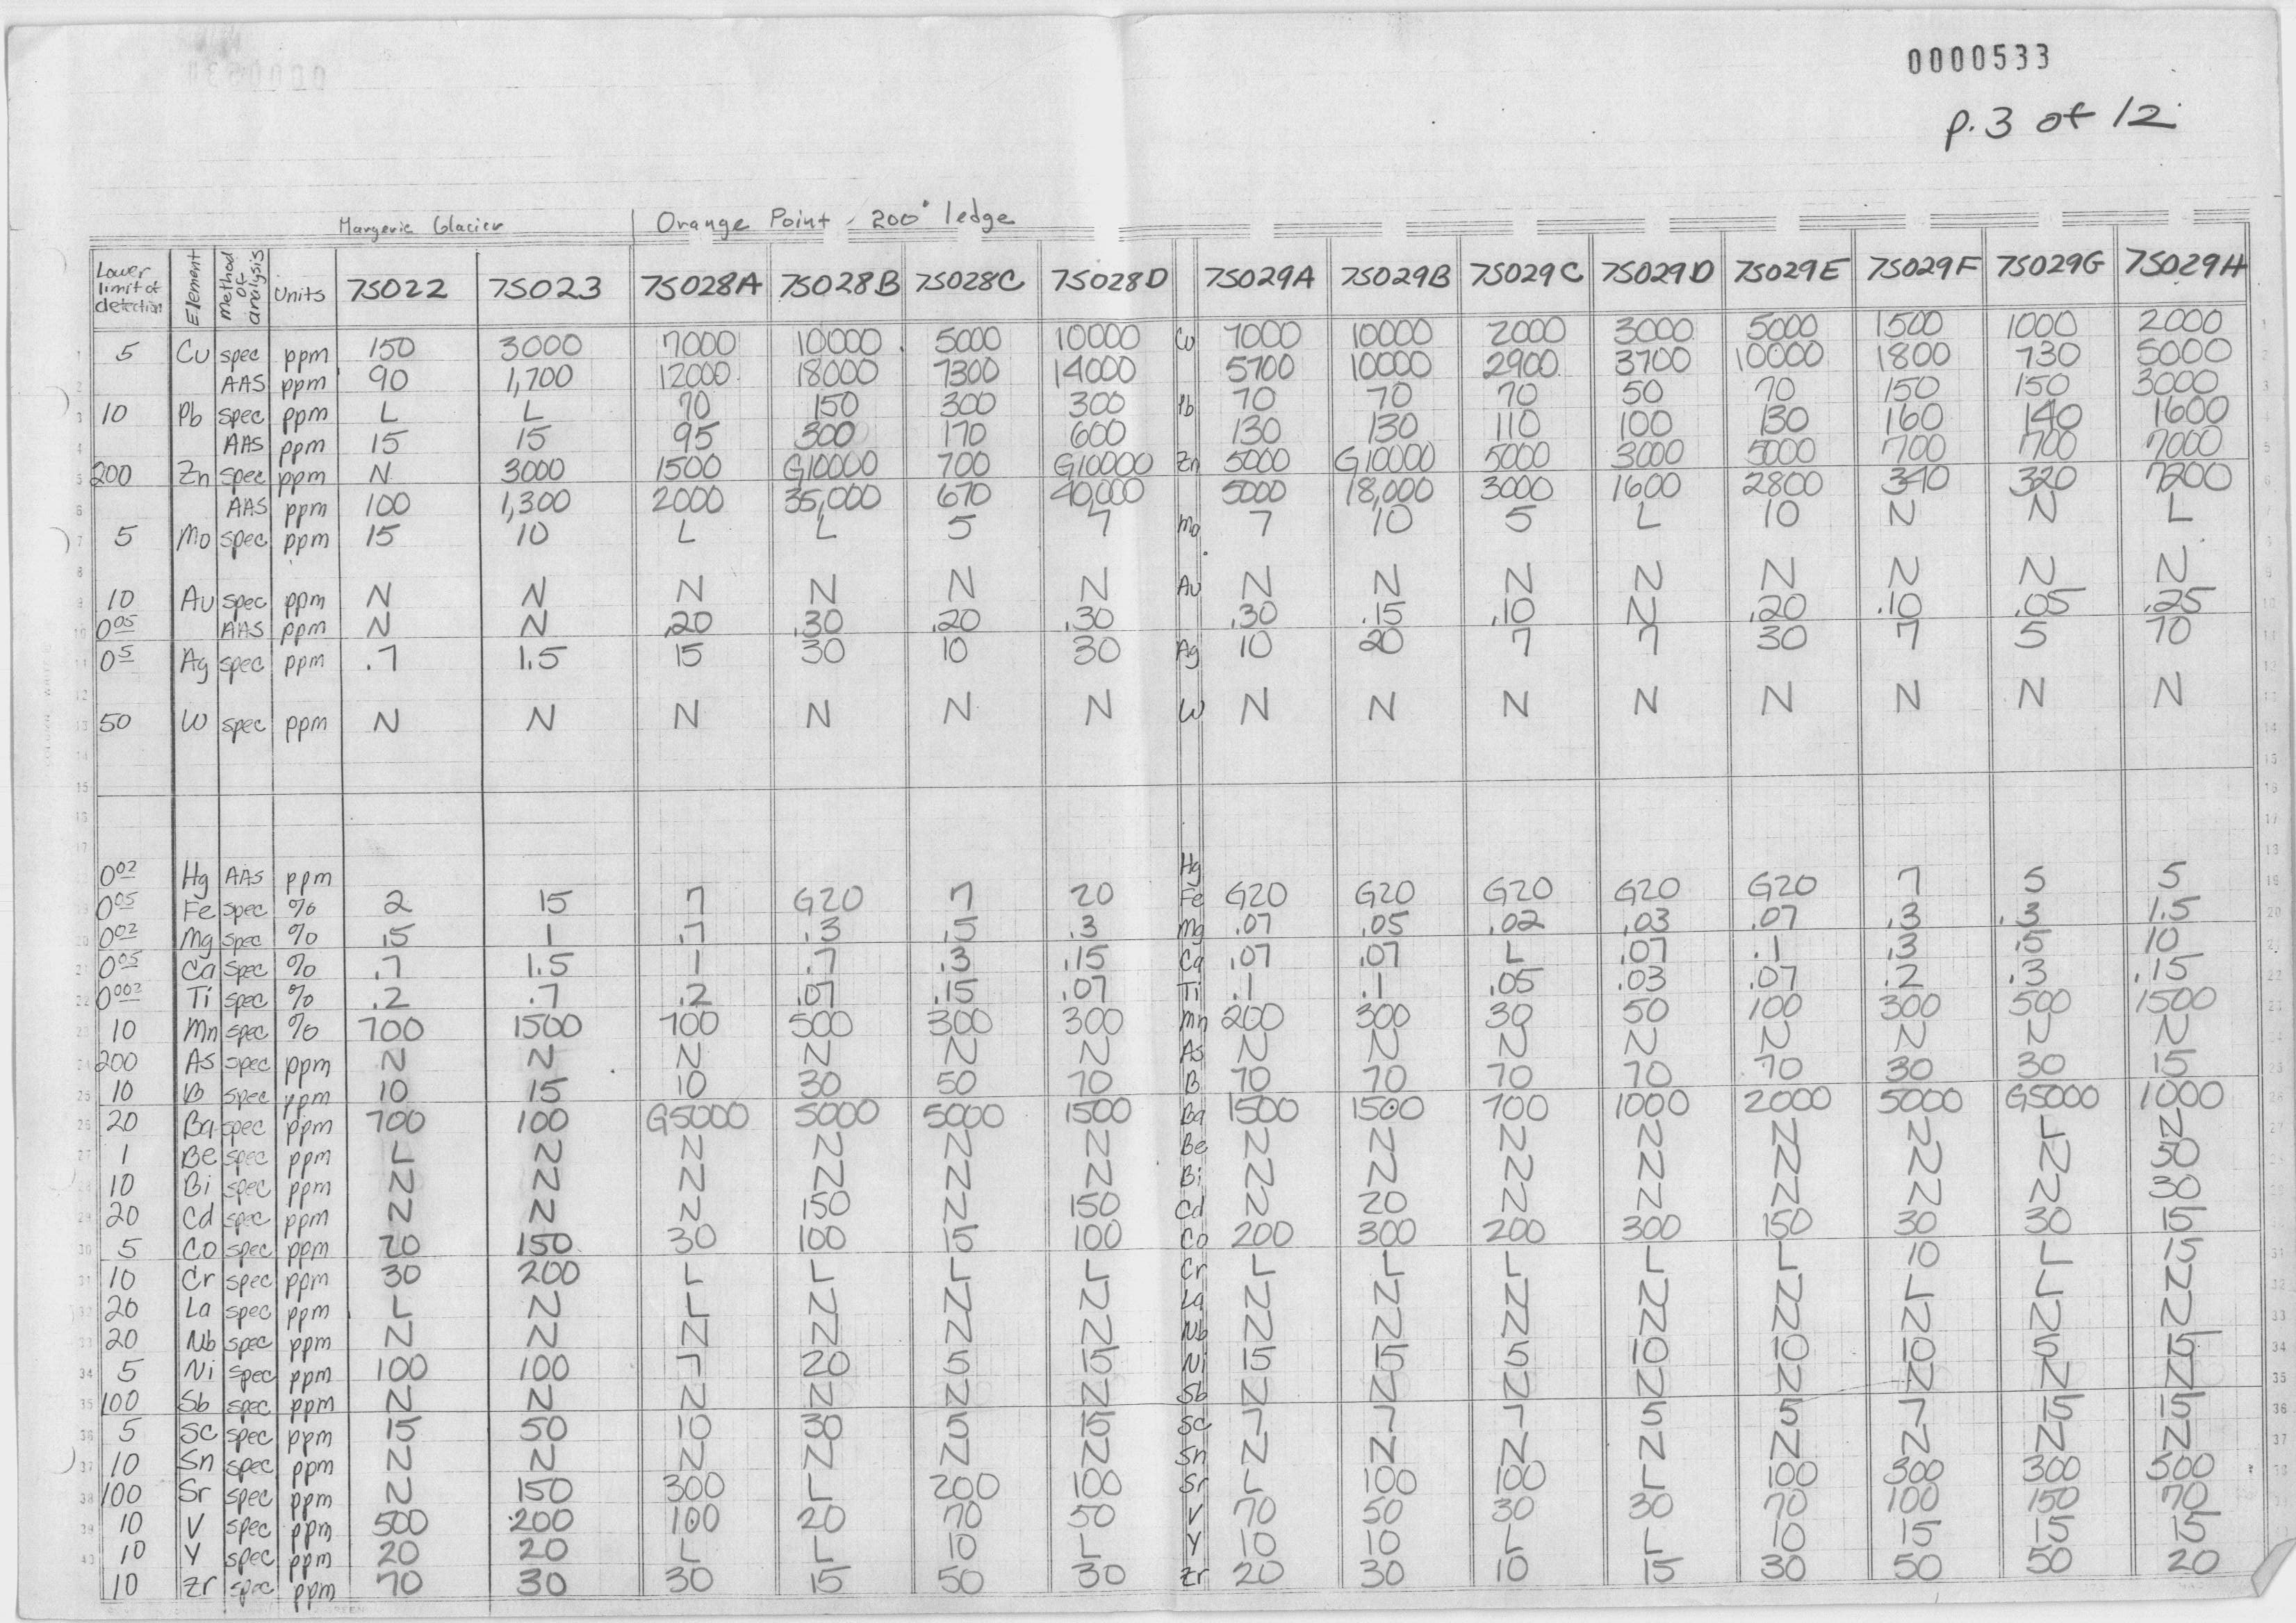 0000533
p. 3 of 12
Margerie Glacier | Orange Point - 200' ledge
Lower limit of detection Element Method of analysis Units 7S022 7S023 7S028A 7S028B 7S028C 7S028D 7S029A 7S029B 7S029C 7S029D 7S029E 7S029F 7S029G 7S029H
5 Cu spec ppm 150 3000 7000 10000 5000 10000 Cu 7000 10000 2000 3000 5000 1500 1000 2000
AAS ppm 90 1,700 12000 18000 7300 14000 5700 10000 2900 3700 10000 1800 730 5000
10 Pb spec ppm L L 70 150 300 300 Pb 70 70 70 50 70 150 150 3000
AAS ppm 15 15 95 300 170 600 130 130 110 100 130 160 140 1600
200 Zn spec ppm N 3000 1500 G10000 700 G10000 Zn 5000 G10000 5000 3000 5000 700 700 7000
AAS ppm 100 1,300 2000 35,000 670 40,000 5000 18,000 3000 1600 2800 340 320 7200
5 Mo spec ppm 15 10 L L 5 7 Mo 7 10 5 L 10 N N L
10 Au spec ppm N N N N N N Au N N N N N N N N
0.05 AAS ppm N N .20 .30 .20 .30 .30 .15 .10 N .20 .10 .05 .25
0.5 Ag spec ppm .7 1.5 15 30 10 30 Ag 10 20 7 7 30 7 5 70
50 W spec ppm N N N N N N W N N N N N N N N
0.02 Hg AAS ppm Hg
0.05 Fe spec % 2 15 7 G20 7 20 Fe G20 G20 G20 G20 G20 7 5 5
0.02 Mg spec % .5 1 .7 .3 .5 .3 Mg .07 .05 .02 .03 .07 .3 .3 1.5
0.05 Ca spec % .7 1.5 1 .7 .3 .15 Ca .07 .07 L .07 .1 .3 .5 10
0.002 Ti spec % .2 .7 .2 .07 .15 .07 Ti .1 .1 .05 .03 .07 .2 .3 .15
10 Mn spec % 700 1500 700 500 300 300 Mn 200 300 30 50 100 300 500 1500
200 As spec ppm N N N N N N As N N N N N N N N
10 B spec ppm 10 15 10 30 50 70 B 70 70 70 70 70 30 30 15
20 Ba spec ppm 700 100 G5000 5000 5000 1500 Ba 1500 1500 700 1000 2000 5000 G5000 1000
1 Be spec ppm L N N N N N Be N N N N N N L N
10 Bi spec ppm N N N N N N Bi N N N N N N N 30
20 Cd spec ppm N N N 150 N 150 Cd N 20 N N N N N 30
5 Co spec ppm 20 150 30 100 15 100 Co 200 300 200 300 150 30 30 15
10 Cr spec ppm 30 200 L L L L Cr L L L L L 10 L 15
20 La spec ppm L N L N N N La N N N N N L L N
20 Nb spec ppm N N N N N N Nb N N N N N N N N
5 Ni spec ppm 100 100 7 20 5 15 Ni 15 15 5 10 10 10 5 15
100 Sb spec ppm N N N N N N Sb N N N N N N N N
5 Sc spec ppm 15 50 10 30 5 15 Sc 7 7 7 5 5 7 15 15
10 Sn spec ppm N N N N N N Sn N N N N N N N N
100 Sr spec ppm N 150 300 L 200 100 Sr L 100 100 L 100 300 300 500
10 V spec ppm 500 200 100 20 70 50 V 70 50 30 30 70 100 150 70
10 Y spec ppm 20 20 L L 10 L Y 10 10 L L 10 15 15 15
10 Zr spec ppm 70 30 30 15 50 30 Zr 20 30 10 15 30 50 50 20